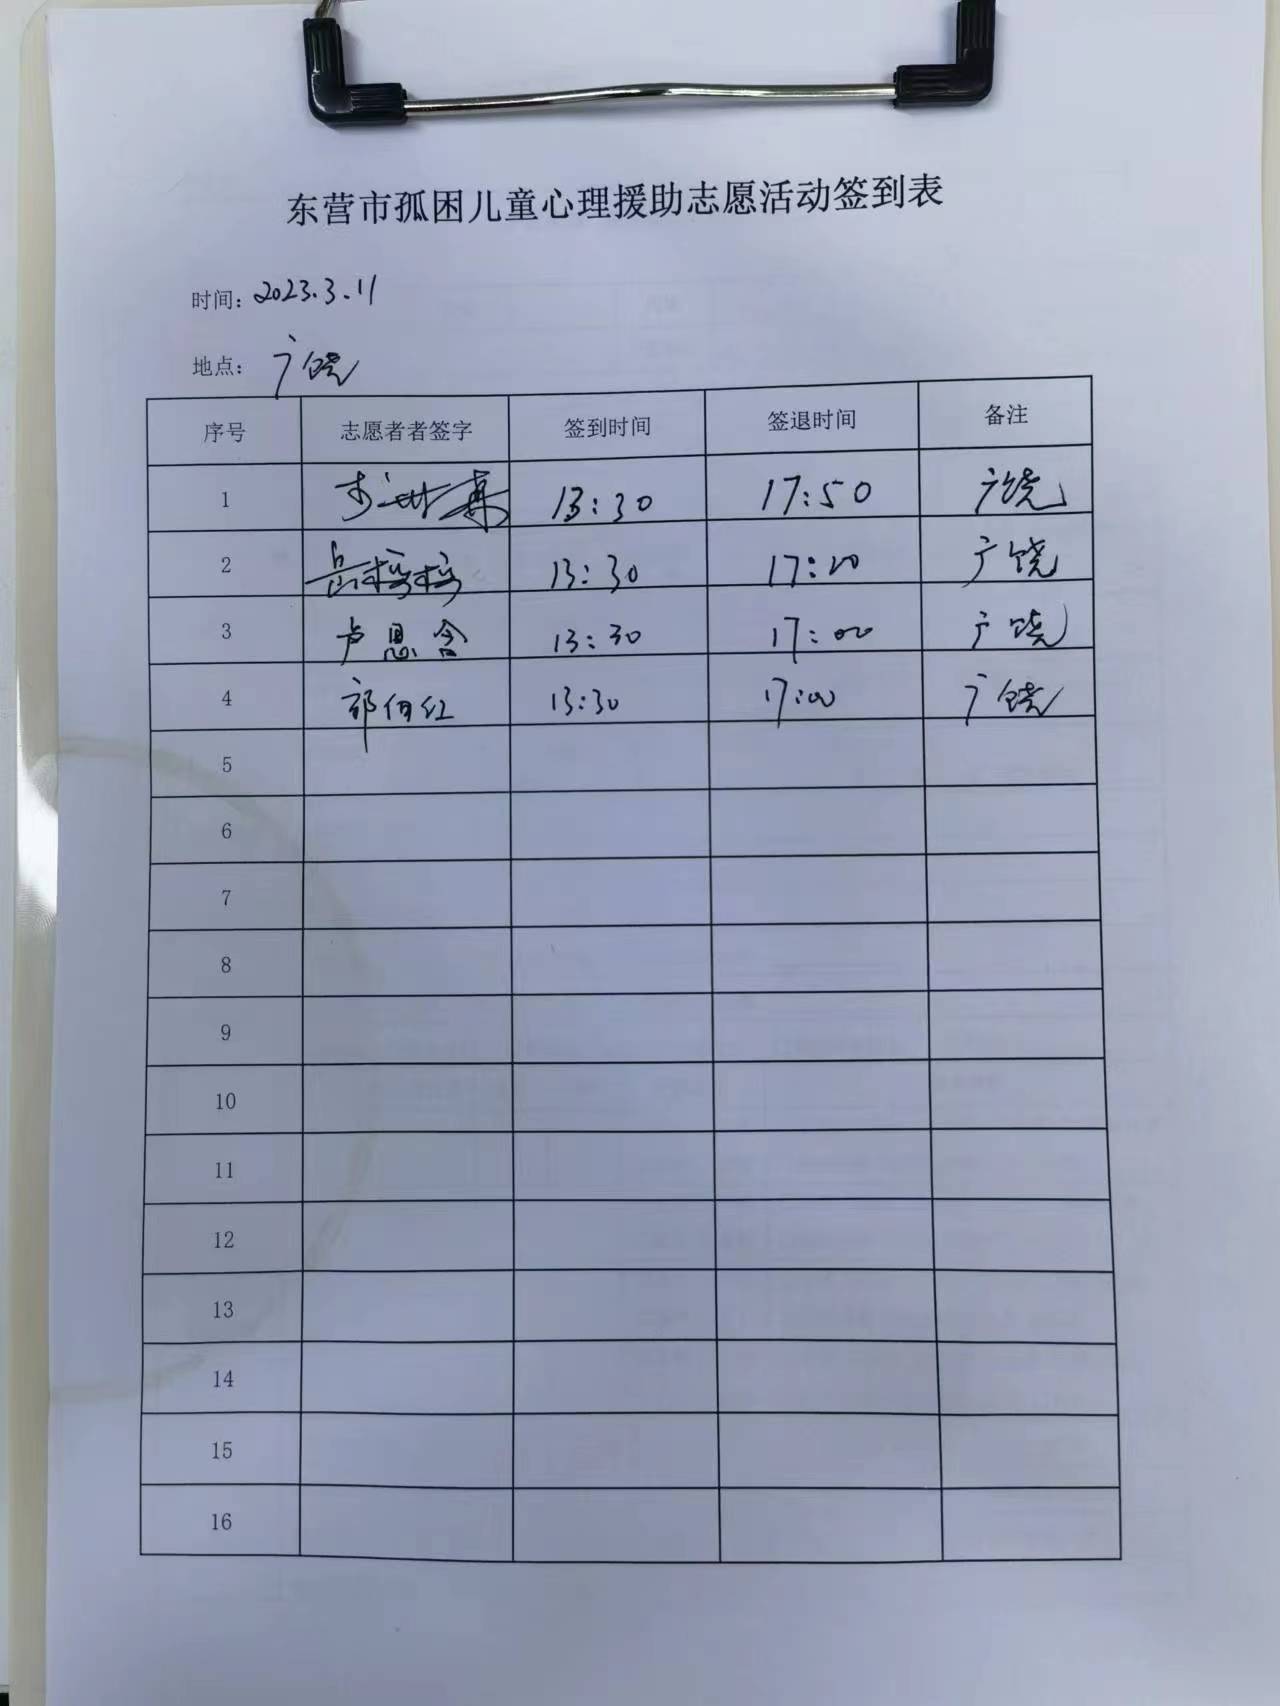 东营市孤困儿童心理援助志愿活动签到表
时间：2023.3.11
地点：广饶
序号 志愿者者签字 签到时间 签退时间 备注
1 13:30 17:50 广饶
2 岳樗樗 13:30 17:20 广饶
3 卢恩含 13:30 17:00 广饶
4 郭伯红 13:30 17:00 广饶
5
6
7
8
9
10
11
12
13
14
15
16